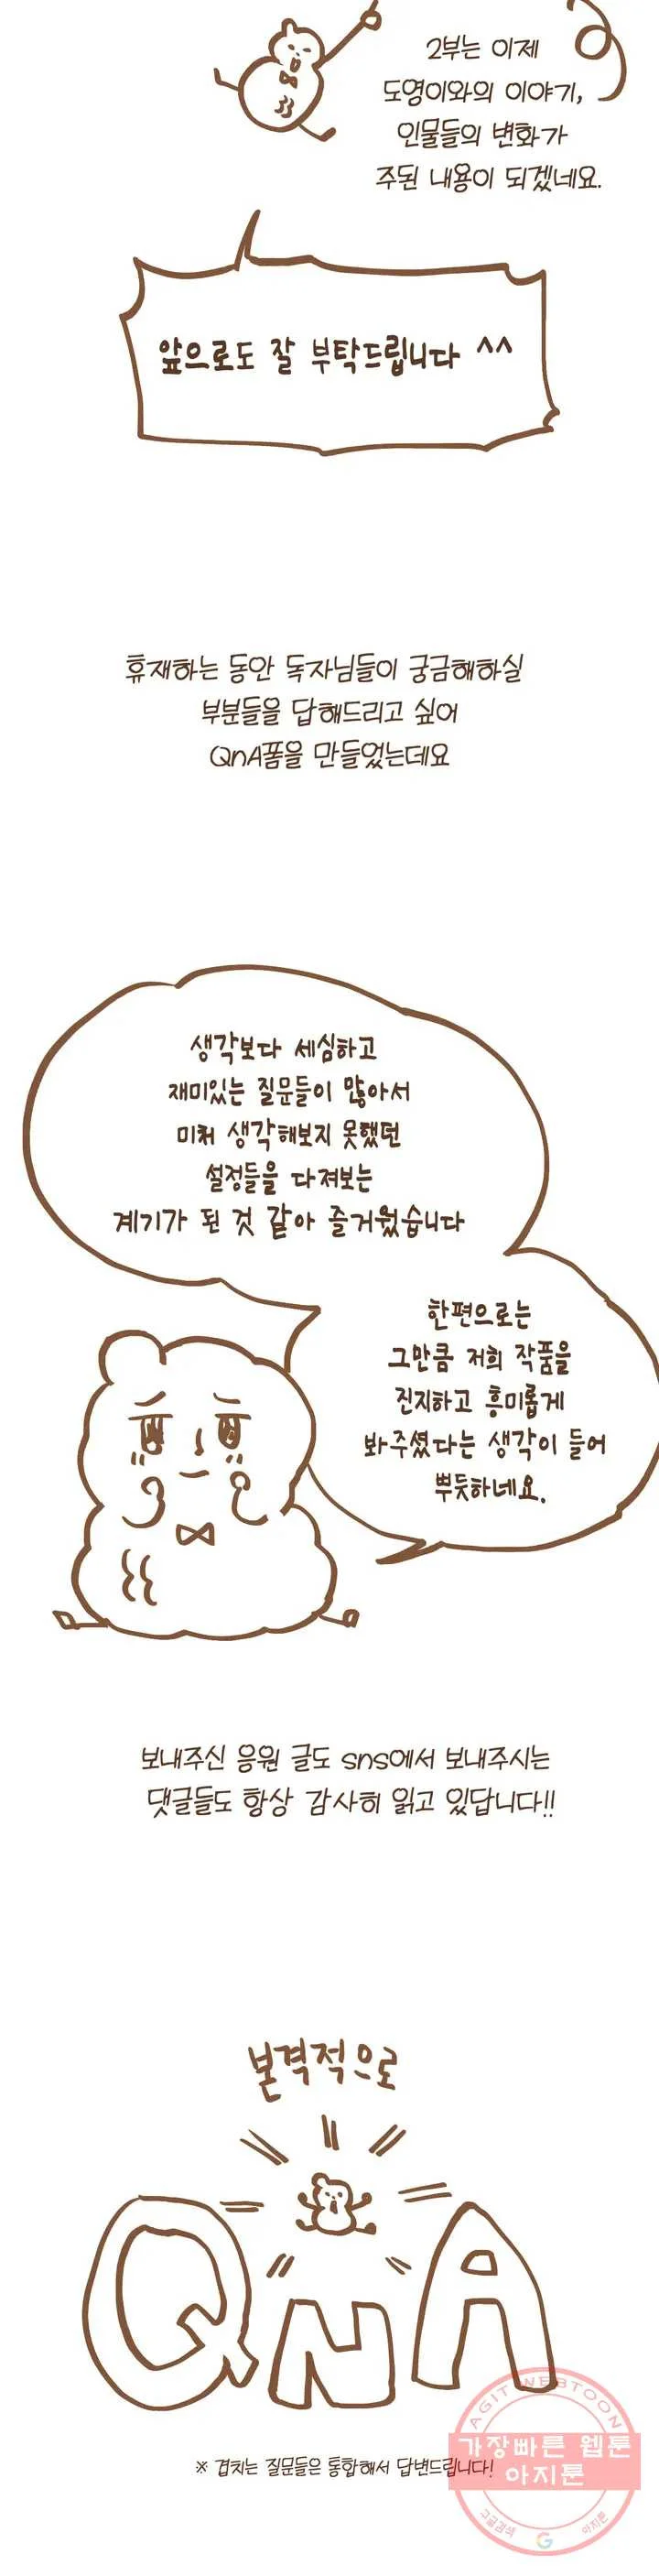 2부는 이제
도영이와의 이야기,
인물들의 변화가
주된 내용이 되겠네요.
앞으로도 잘 부탁드립니다 ^^
휴재하는 동안 독자님들이 궁금해하실
부분들을 답해드리고 싶어
QnA폼을 만들었는데요
생각보다 세심하고
재미있는 질문들이 많아서
미처 생각해보지 못했던
설정들을 다져보는
계기가 된 것 같아 즐거웠습니다
한편으로는
그만큼 저희 작품을
진지하고 흥미롭게
봐주셨다는 생각이 들어
뿌듯하네요.
보내주신 응원 글도 sns에서 보내주시는
댓글들도 항상 감사히 읽고 있답니다!!
본격적으로
QnA
※ 겹치는 질문들은 통합해서 답변드립니다!
AGIT WEBTOON
가장빠른 웹툰
아지툰
구글검색
G
아지툰